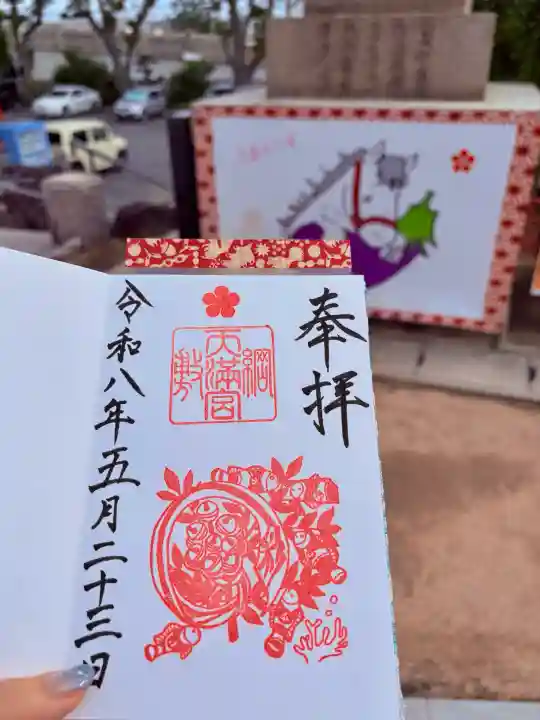 奉拝
綱敷天満宮
令和八年五月二十三日